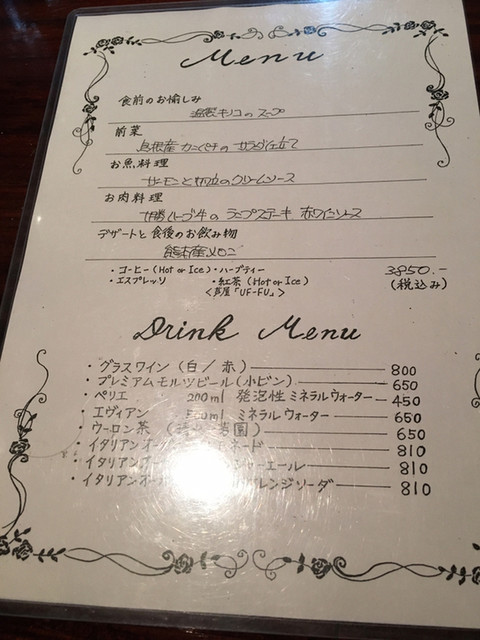 Menu
食前のお愉しみ
キノコのスープ
前菜
島根産 の サラダ仕立て
お魚料理
サーモンと のクリームソース
お肉料理
十勝ハーブ牛のランプステーキ 赤ワインソース
デザートと食後のお飲み物
熊本産メロン
・コーヒー(Hot or Ice)・ハーブティー 3850.-
・エスプレッソ ・紅茶(Hot or Ice) (税込み)
<芦屋「UF-FU」>
Drink Menu
・グラスワイン(白/赤) 800
・プレミアムモルツビール(小ビン) 650
・ペリエ 200ml 発泡性ミネラルウォーター 450
・エヴィアン ml ミネラルウォーター 650
・ウーロン茶 ( 園) 650
・イタリアンオー ネード 810
・イタリアンオー ャーエール 810
・イタリアンオー レンジソーダ 810